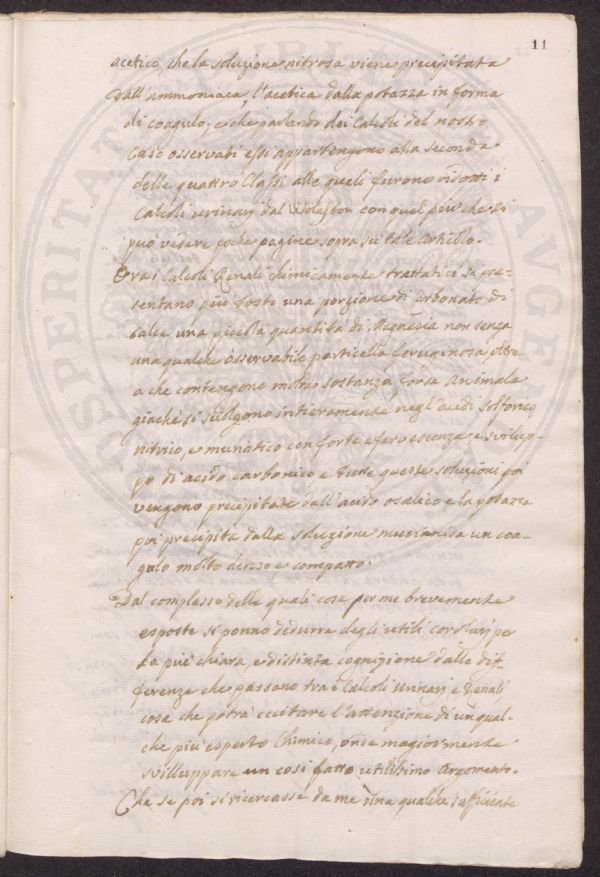 11
acetico, che la soluzione nitrosa viene precipitata
dall'ammoniaca, l'acetica dalla potazza in forma
di coagulo; e che parlando dei Calcoli del nostro
Caso osservati essi appartengono alla seconda
delle quattro Classi alle quali furono ridotti i
Calcoli urinarj dal Wolaston con quel più che si
può vedere poche pagine sopra su tale articolo.
Ora i Calcoli Renali chimicamente trattati ci si pre-
sentano più tosto una porzione di Carbonato di
calce, una picciola quantità di Magnesia non senza
una qualche osservabile particella ferruginosa oltre
a che contengono molta sostanza forse Animale
giachè si sciolgono intieramente negl'acidi solforico
nitrico, e muriatico con forte efervescenza, e svilup-
po di acido carbonico e tutte queste soluzioni poi
vengono precipitate dall'acido osalico e la potazza
poi precipita dalla soluzione muriatica un coa-
gulo molto denso e compatto.
Dal complesso delle quali cose per me brevemente
esposte si ponno dedurre degli utili corolarj per
la più chiara, e distinta cognizione dalle dif-
ferenze che passano tra i Calcoli urinarj e renali,
cosa che potrà eccitare l'attenzione di un qual-
che più esperto Chimico, onde magiormente
svilluppare un così fatto utilissimo Argomento.
Che se poi si ricercasse da me una qualche sufficiente
PROSPERITATI AVGENDAE